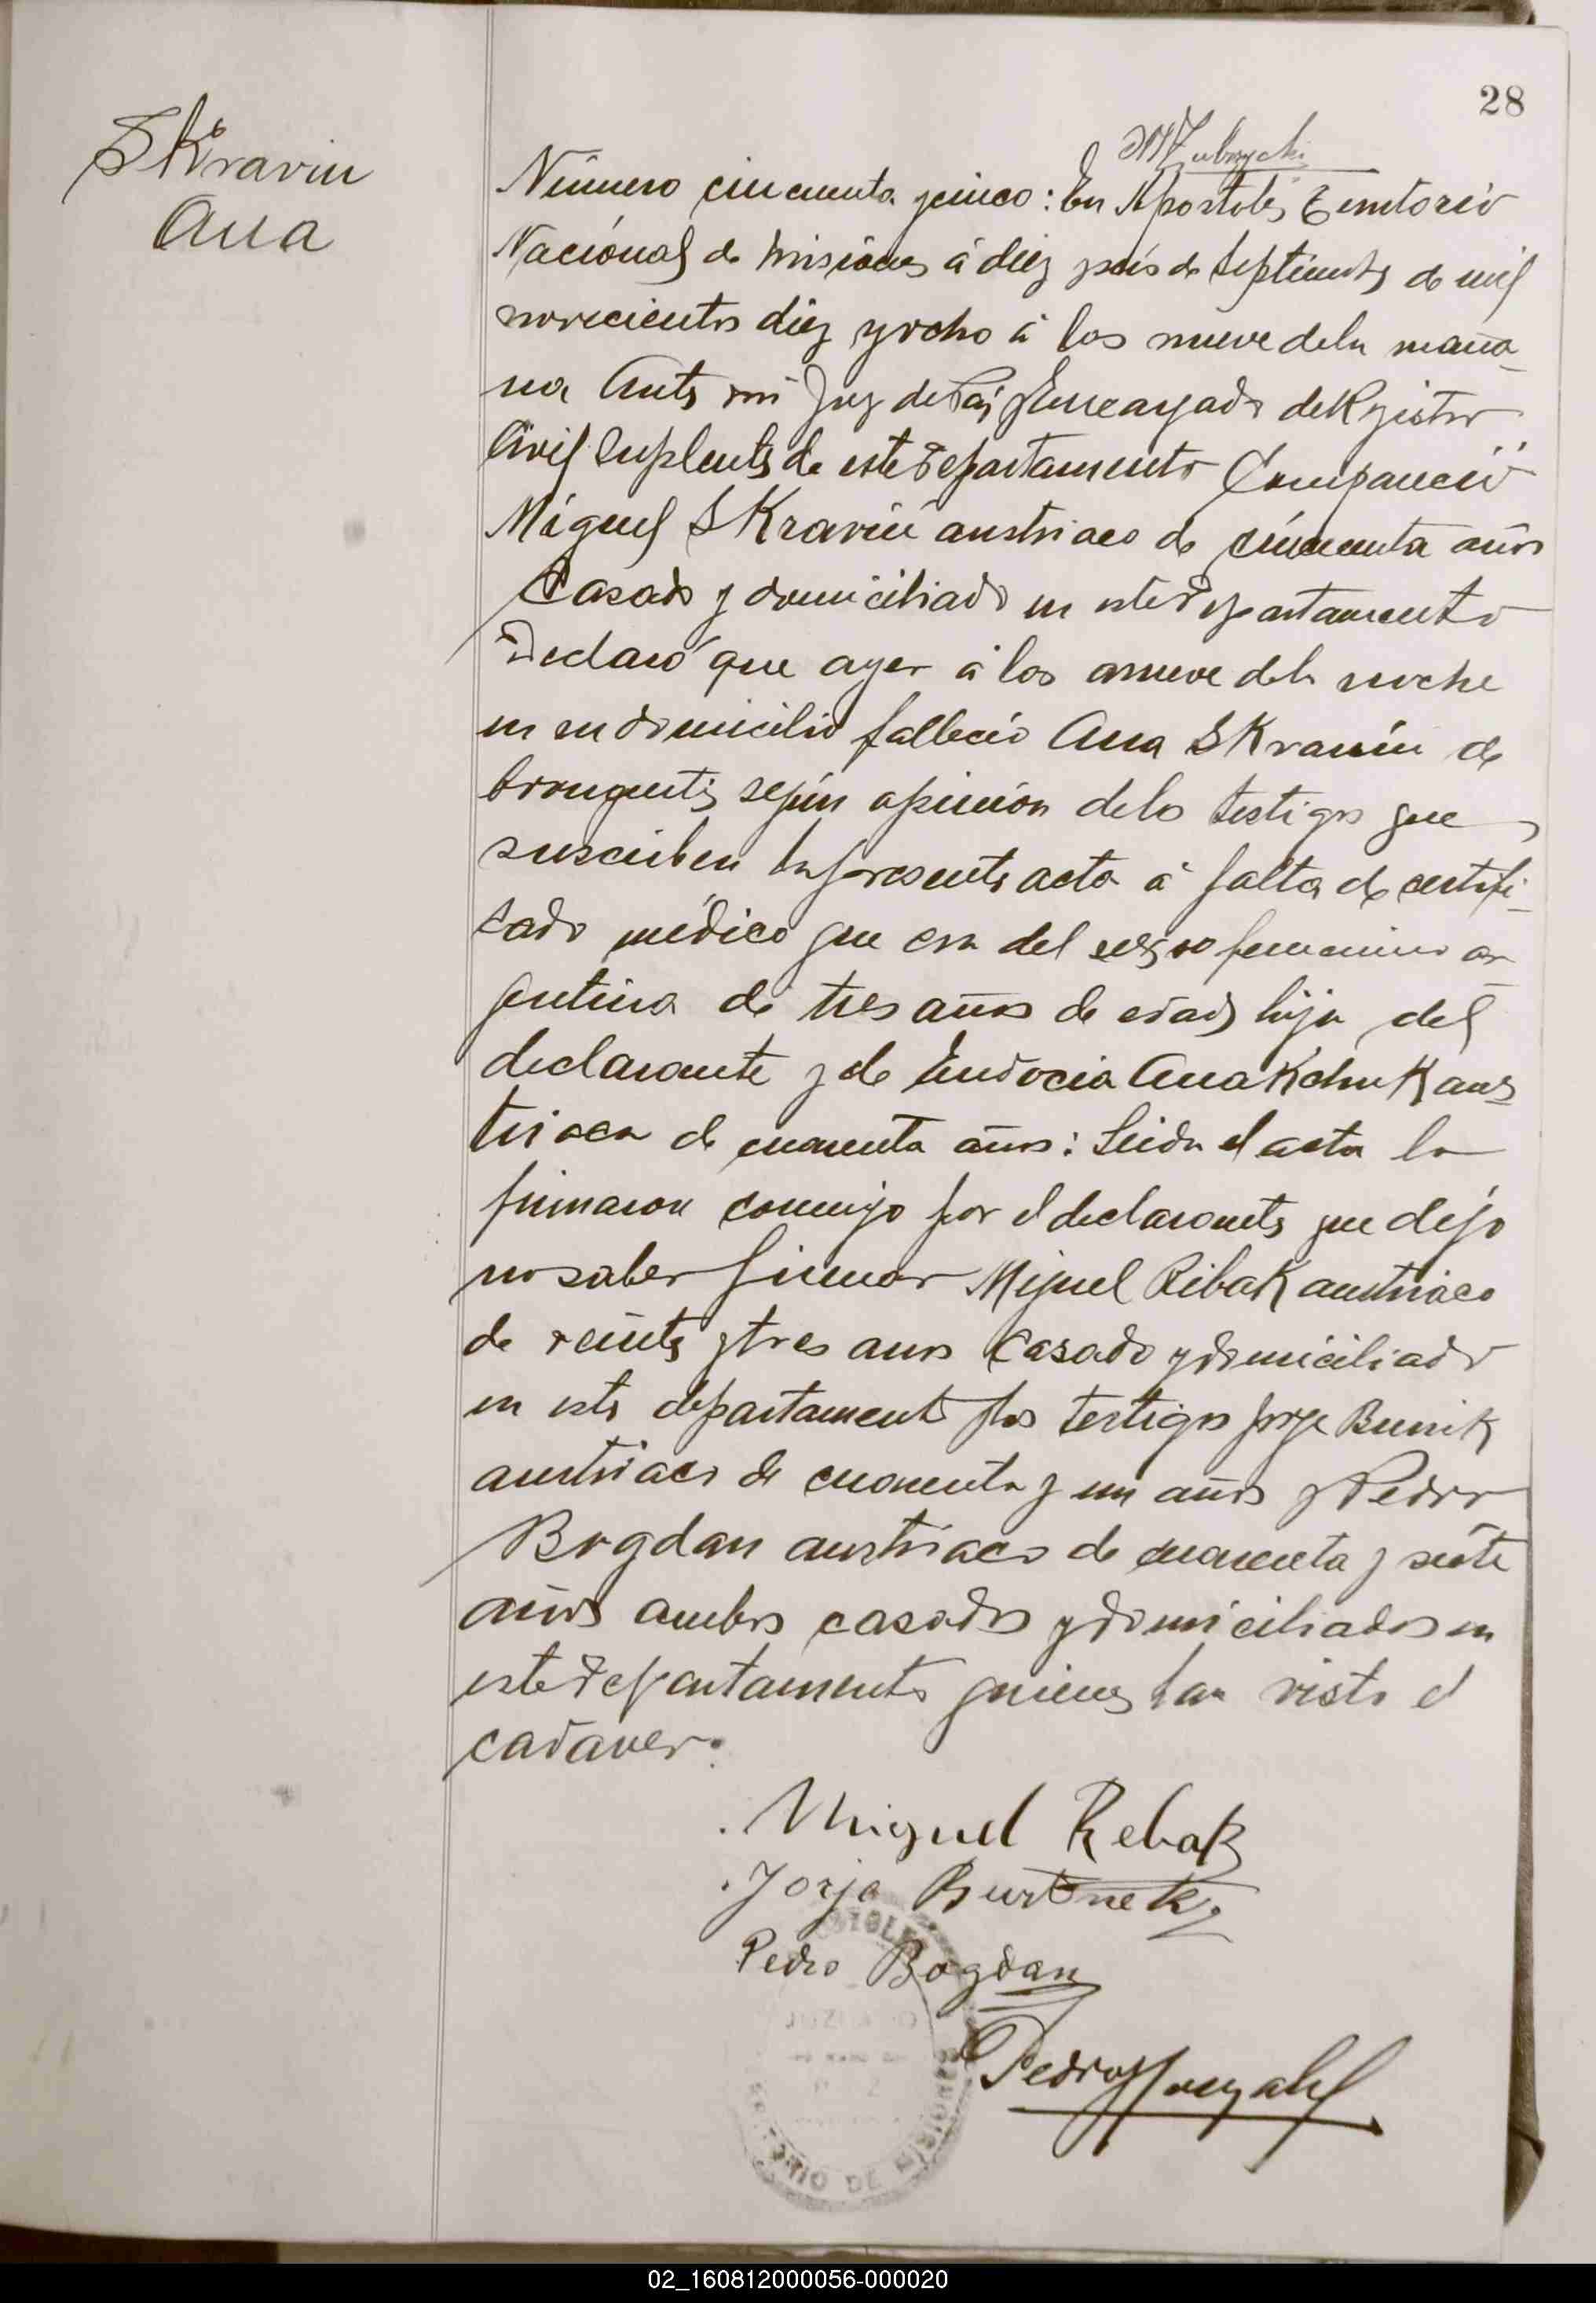 28
Skravin
Ana
Número cincuenta y cinco: En Apostoles Territorio
Nacional de Misiones á diez y seis de Septiembre de mil
novecientos diez y ocho á las nueve dela maña-
na Ante mi Juez de Paz y Encargado de Registro
Civil Suplente de este Departamento Compareció
Miguel SKravin austriaco de cincuenta años
Casado y domiciliado en este Departamento
Declaró que ayer á las nueve dela noche
en su domicilio falleció Ana SKravin de
bronquitis según opinión delos testigos que
suscriben la presente acta á falta de certifi-
cado médico que era del sexo femenino ar
gentina de tres años de edad hija del
declarante y de Eudocia Ana aus-
triaca de cuarenta años: Leida el acta la
firmaron conmigo por el declarante que dijo
no saber firmar Miguel RibaK austriaco
de veinte y tres anos Casado y domiciliado
en este departamento y los testigos Jorge
austriaco de cuarenta y un años y Pedro
Bogdan austriaco de cuarenta y siete
años ambos casados y domiciliados en
este Departamento quienes han visto el
cadaver.
Miguel Rebak
Jorje
Pedro Bogdan
Pedro Gonzalez
TERRITORIO DE MISIONES
02_160812000056-000020